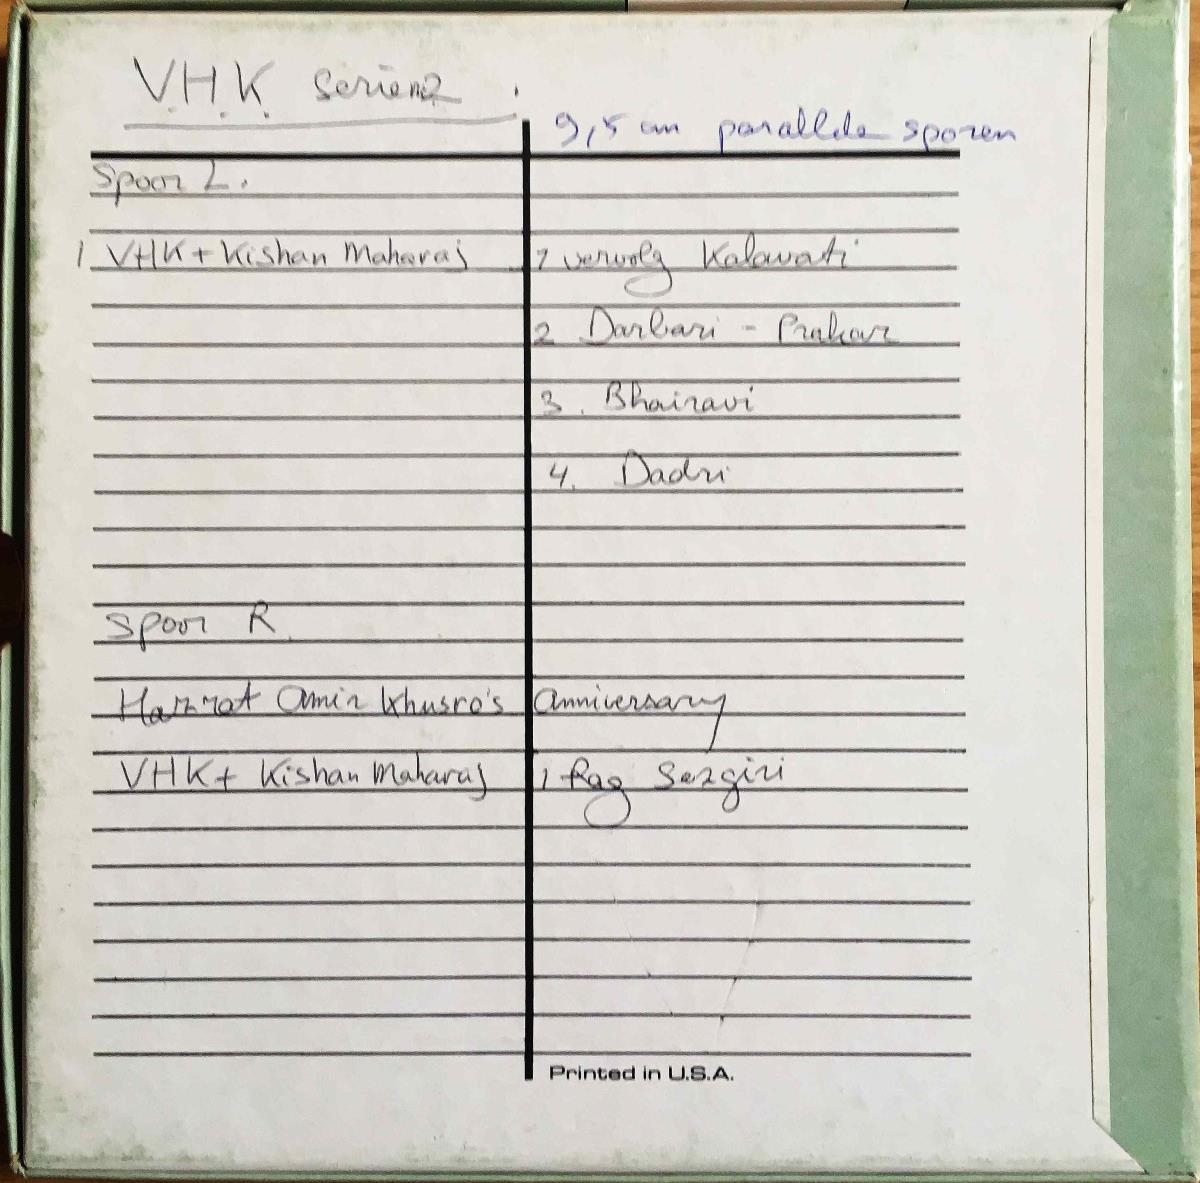 V.H.K serie n2.
9,5 cm parallele sporen
Spoor L.
1 VHK + Kishan Maharaj 1 vervolg Kalawati
2 Darbari - Prakar
3. Bhairavi
4. Dadri
Spoor R
Hazrat Amir Khusro's Anniversary
VHK + Kishan Maharaj 1 Rag Sazgiri
Printed in U.S.A.